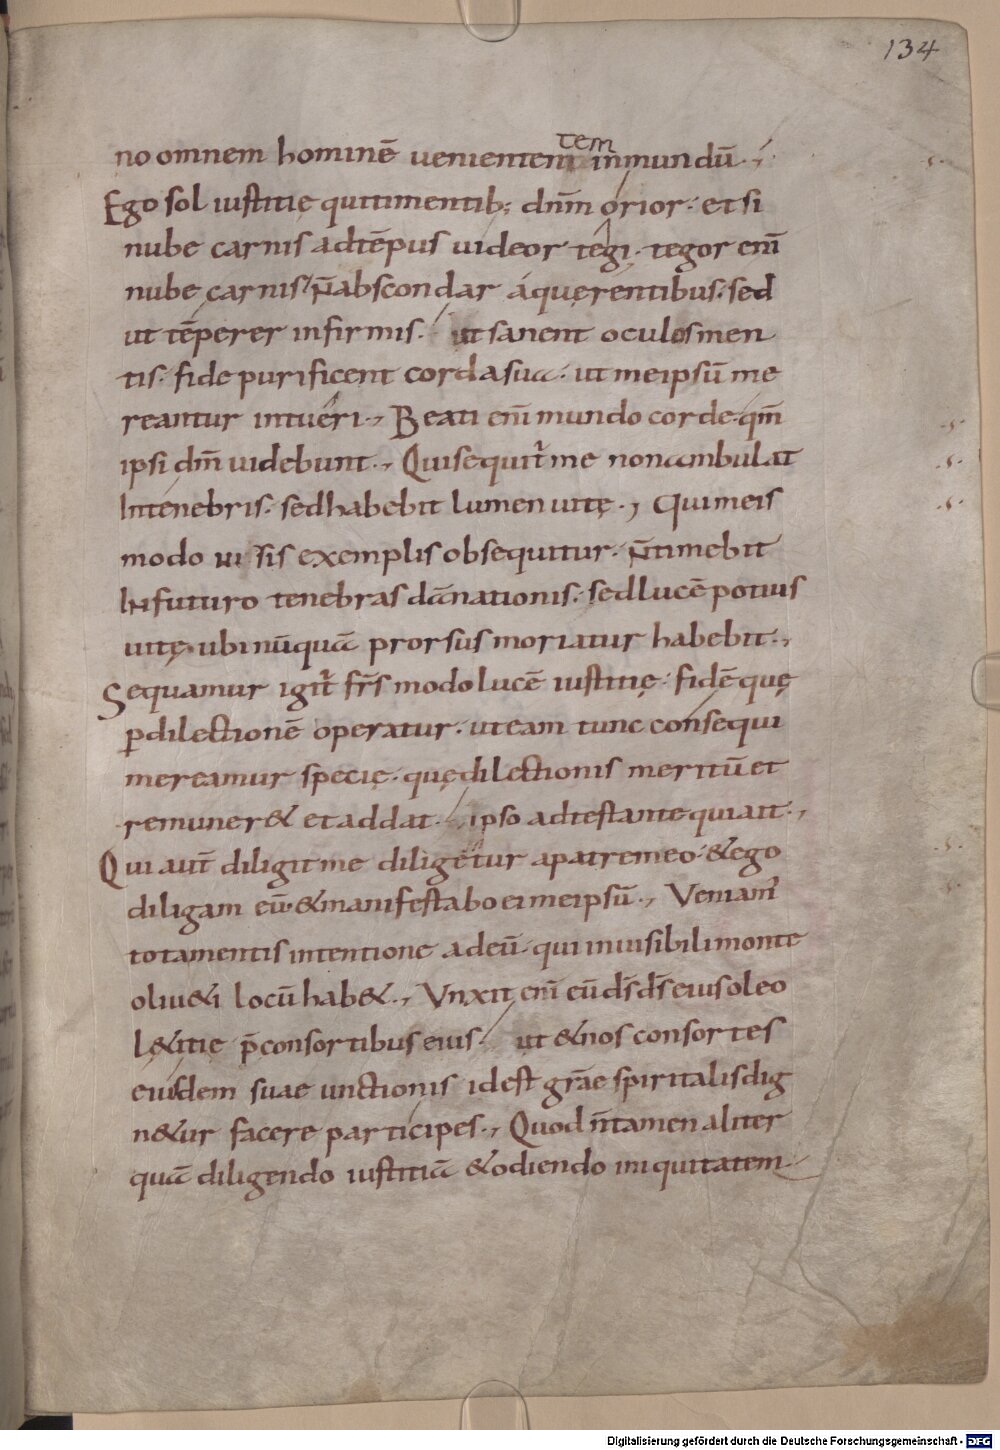 134
no omnem hominē uenientem tem in mundū.
Ego sol iustitię qui timentib; dn̄m orior. et si
nube carnis ad tēpus uideor tegi. tegor enī
nube carnis n̄ abscondar a quęrentibus. sed
ut tēperer infirmis. ut sanent oculos men
tis. fide purificent corda sua. ut me ipsū me
reantur intueri., Beati enī mundo corde. qm̄
ipsi dm̄ uidebunt., Qui sequit̄ me non ambulat
In tenebris. sed habebit lumen uitę., Qui meis
modo iussis exemplis obsequitur. n̄ timebit
In futuro tenebras dānationis. sed lucē potius
uitę ubi nūquā prorsus moriatur habebit.,
Sequamur igit̄ frs̄ modo lucē iustitię. fidē quę
ꝑ dilectionē operatur. ut eam tunc consequi
mereamur specię. quę dilectionis meritū et
remuner& et addat. ipso adtestante qui ait.,
Qui aut̄ diligit me diligetur a patre meo. & ego
diligam eū. & manifestabo ei me ipsū., Veniam'
tota mentis intentione ad eū. qui in uisibili monte
oliu&i locū hab&., Vnxit enī eū ds̄ ds̄ eius oleo
l&itię p̄ consortibus eius. ut & nos consortes
eiusdem suae unctionis id est grāe spiritalis dig
n&ur facere participes., Quod n̄ tamen aliter
quā diligendo iustitiā & odiendo iniquitatem
Digitalisierung gefördert durch die Deutsche Forschungsgemeinschaft - DFG